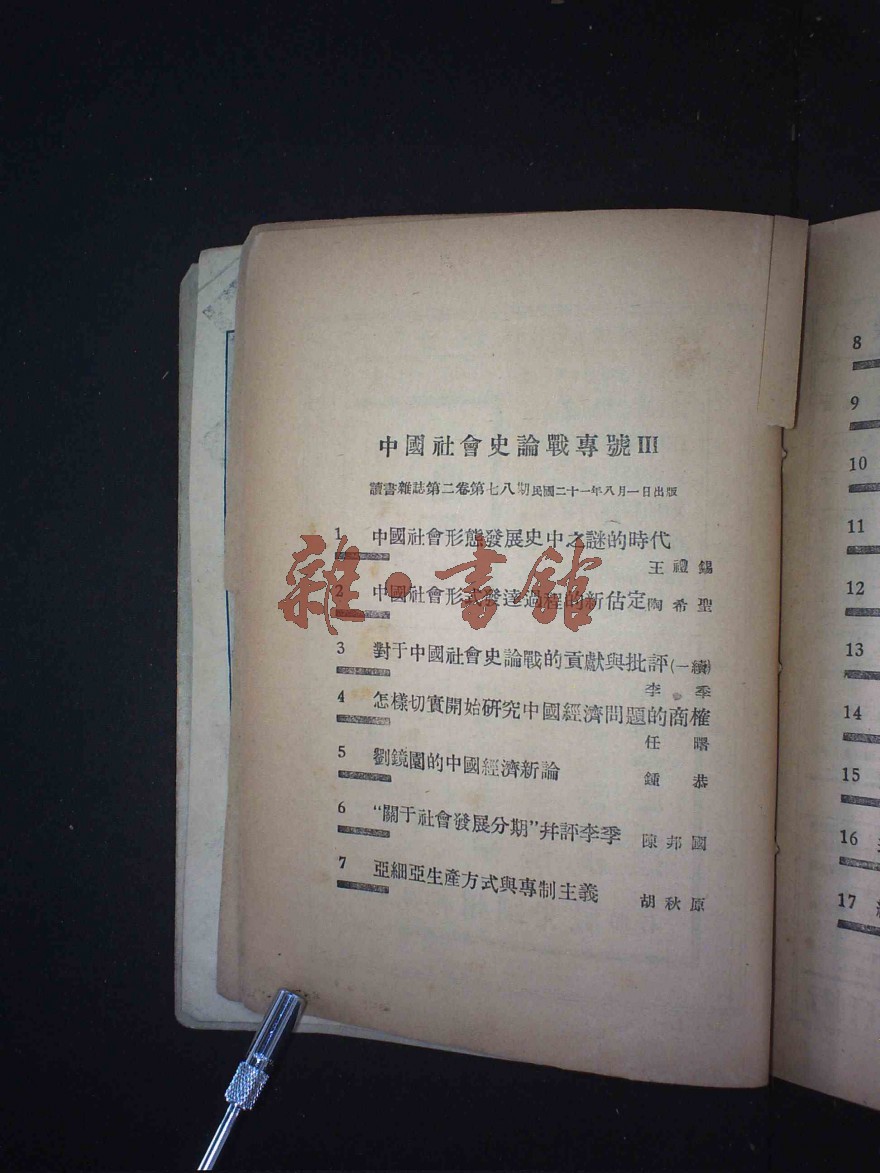 中國社會史論戰專號III
讀書雜誌第二卷第七八期民國二十一年八月一日出版
1 中國社會形態發展史中之謎的時代
王禮錫
2 中國社會形式發達過程的新估定 陶希聖
3 對于中國社會史論戰的貢獻與批評(一續)
李季
4 怎樣切實開始研究中國經濟問題的商榷
任曙
5 劉鏡園的中國經濟新論 鍾恭
6 “關于社會發展分期”幷評李季 陳邦國
7 亞細亞生產方式與專制主義 胡秋原
雜·書館
8
9
10
11
12
13
14
15
16
17